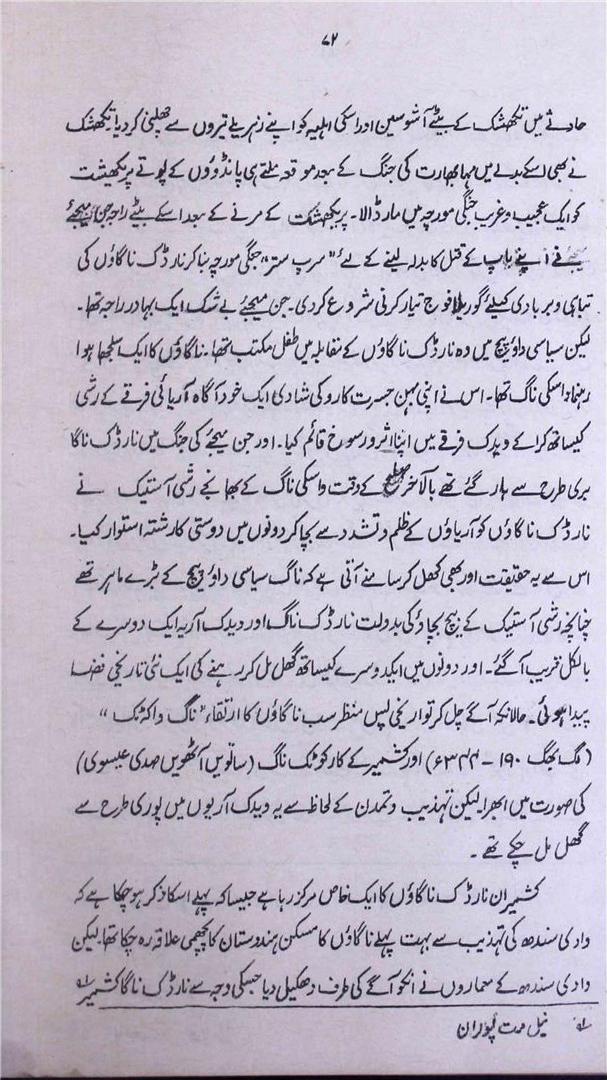 ۷۲
حادثے میں تکھشک کے بیٹے آشوسین اور اسکی اہلیہ کو اپنے زہریلے تیروں سے چھلنی کر دیا تکھشک
نے بھی اسکے بدلے میں مہا بھارت کی جنگ کے بعد موقعہ ملتے ہی پانڈوؤں کے پوتے پریکھشت
کو ایک عجیب و غریب جنگی مورچہ میں مار ڈالا۔ پریکھشت کے مرنے کے بعد اسکے بیٹے راجہ جن میجئے
نے اپنے باپ کے قتل کا بدلہ لینے کے لئے "سرپ ستر" جنگی مورچہ بنا کر نارڈک ناگاؤں کی
تباہی و بربادی کیلئے گوریلا فوج تیار کرنی شروع کر دی۔ جن میجئے بے شک ایک بہادر راجہ تھا۔
لیکن سیاسی داؤ پیچ میں وہ نارڈک ناگاؤں کے مقابلہ میں طفل مکتب تھا۔ ناگاؤں کا ایک سلجھا ہوا
رہنما واسکی ناگ تھا۔ اس نے اپنی بہن جسرت کارو کی شادی ایک خود آگاہ آریائی فرقے کے رشی
کیساتھ کرا کے ویدک فرقے میں اپنا اثر و رسوخ قائم کیا۔ اور جن میجئے کی جنگ میں نارڈک ناگا
بری طرح سے ہار گئے تھے بالآخر صلح کے وقت واسکی ناگ کے بھانجے رشی آستیک نے
نارڈک ناگاؤں کو آریاؤں کے ظلم و تشدد سے بچا کر دونوں میں دوستی کا رشتہ استوار کیا۔
اس سے یہ حقیقت اور بھی کھل کر سامنے آتی ہے کہ ناگ سیاسی داؤ پیچ کے بڑے ماہر تھے
چنانچہ رشی آستیک کے بیچ بچاؤ کی بدولت نارڈک ناگ اور ویدک آریہ ایک دوسرے کے
بالکل قریب آ گئے۔ اور دونوں میں ایکدوسرے کیساتھ گھل مل کر رہنے کی ایک نئی تاریخی فضا
پیدا ہوئی۔ حالانکہ آگے چل کر تواریخی پس منظر سب ناگاؤں کا ارتقاء "ناگ واکٹک"
(لگ بھگ ۱۹۰ - ۳۴۴ء) اور کشمیر کے کارکوٹک ناگ (ساتویں آٹھویں صدی عیسوی)
کی صورت میں ابھرا لیکن تہذیب و تمدن کے لحاظ سے یہ ویدک آریوں میں پوری طرح سے
گھل مل چکے تھے۔
کشمیر ان نارڈک ناگاؤں کا ایک خاص مرکز رہا ہے جیسا کہ پہلے اسکا ذکر ہو چکا ہے کہ
وادی سندھ کی تہذیب سے بہت پہلے ناگاؤں کا مسکن ہندوستان کا پچھمی علاقہ رہ چکا تھا۔ لیکن
وادی سندھ کے معماروں نے انکو آگے کی طرف دھکیل دیا جسکی وجہ سے نارڈک ناگا کشمیر
نیل مت پوران